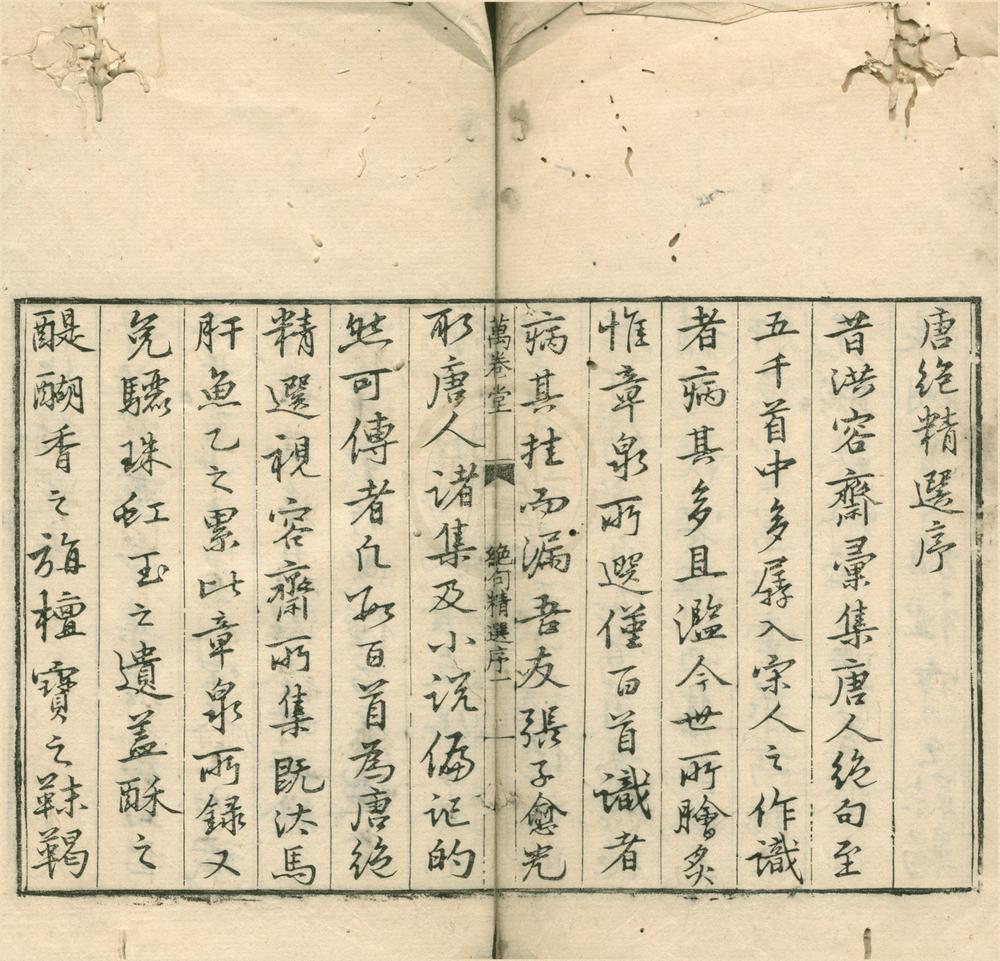 唐絶精選序
昔洪容齋彙集唐人絶句至
五千首中多孱入宋人之作識
者病其多且濫今世所膾炙
惟章泉所選僅百首識者
病其挂而漏吾友張子愈光
萬卷堂 絶句精選序 一
取唐人諸集及小說偏記的
然可傳者凡數百首為唐絶
精選視容齋所集既汰馬
肝魚乙之累比章泉所録又
免驪珠虹玉之遺蓋酥之
醍醐香之旃檀寶之靺鞨